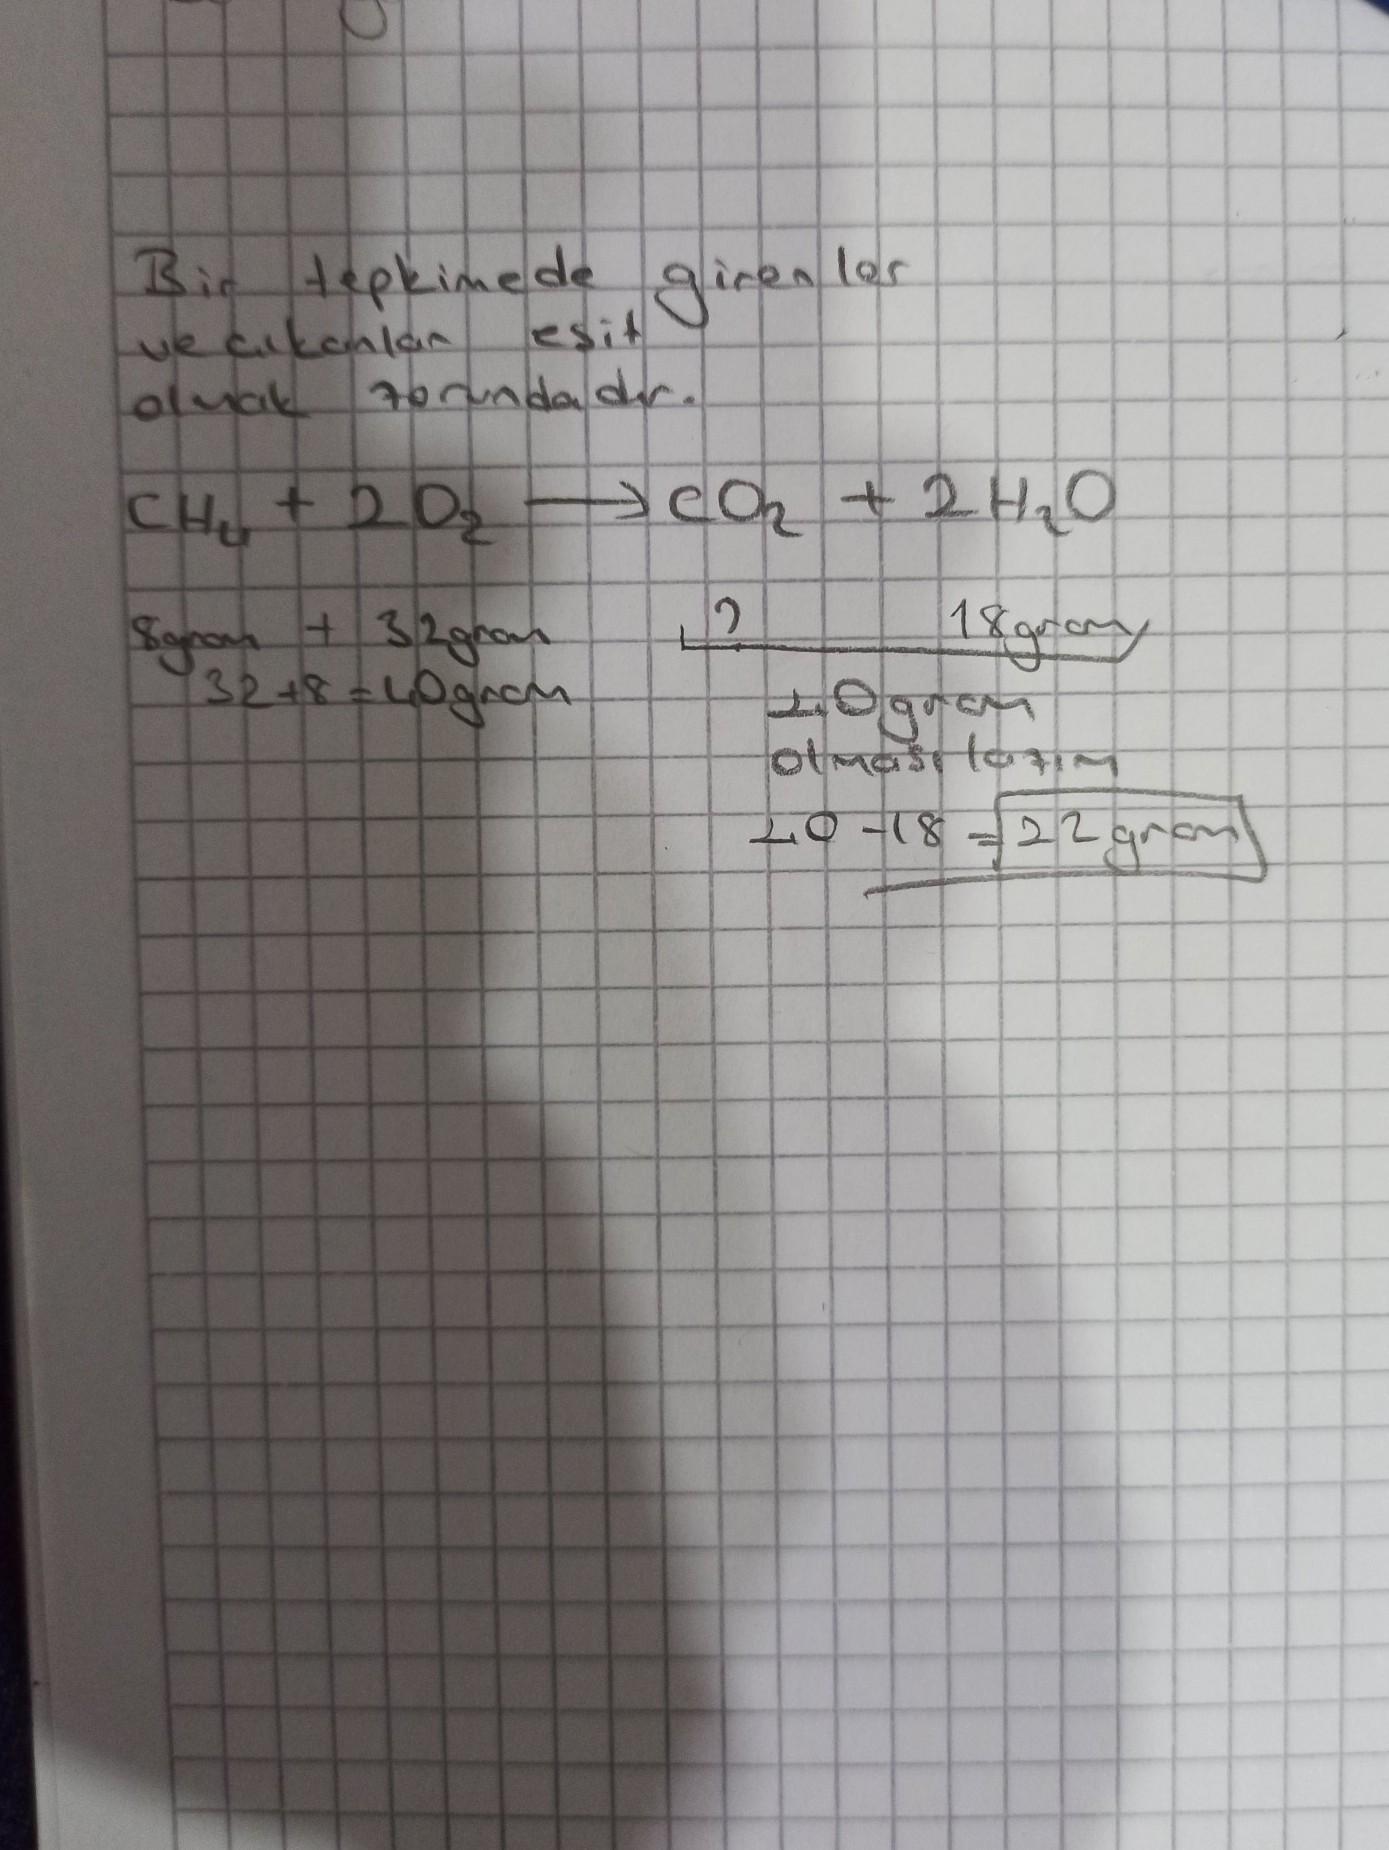 Bir tepkimede girenler
ve çıkanlar eşit
olmak zorundadır.
CH₄ + 2O₂ → CO₂ + 2H₂O
8gram + 32gram ? 18gram
32+8=40gram
40gram
olması lazım
40-18=22gram